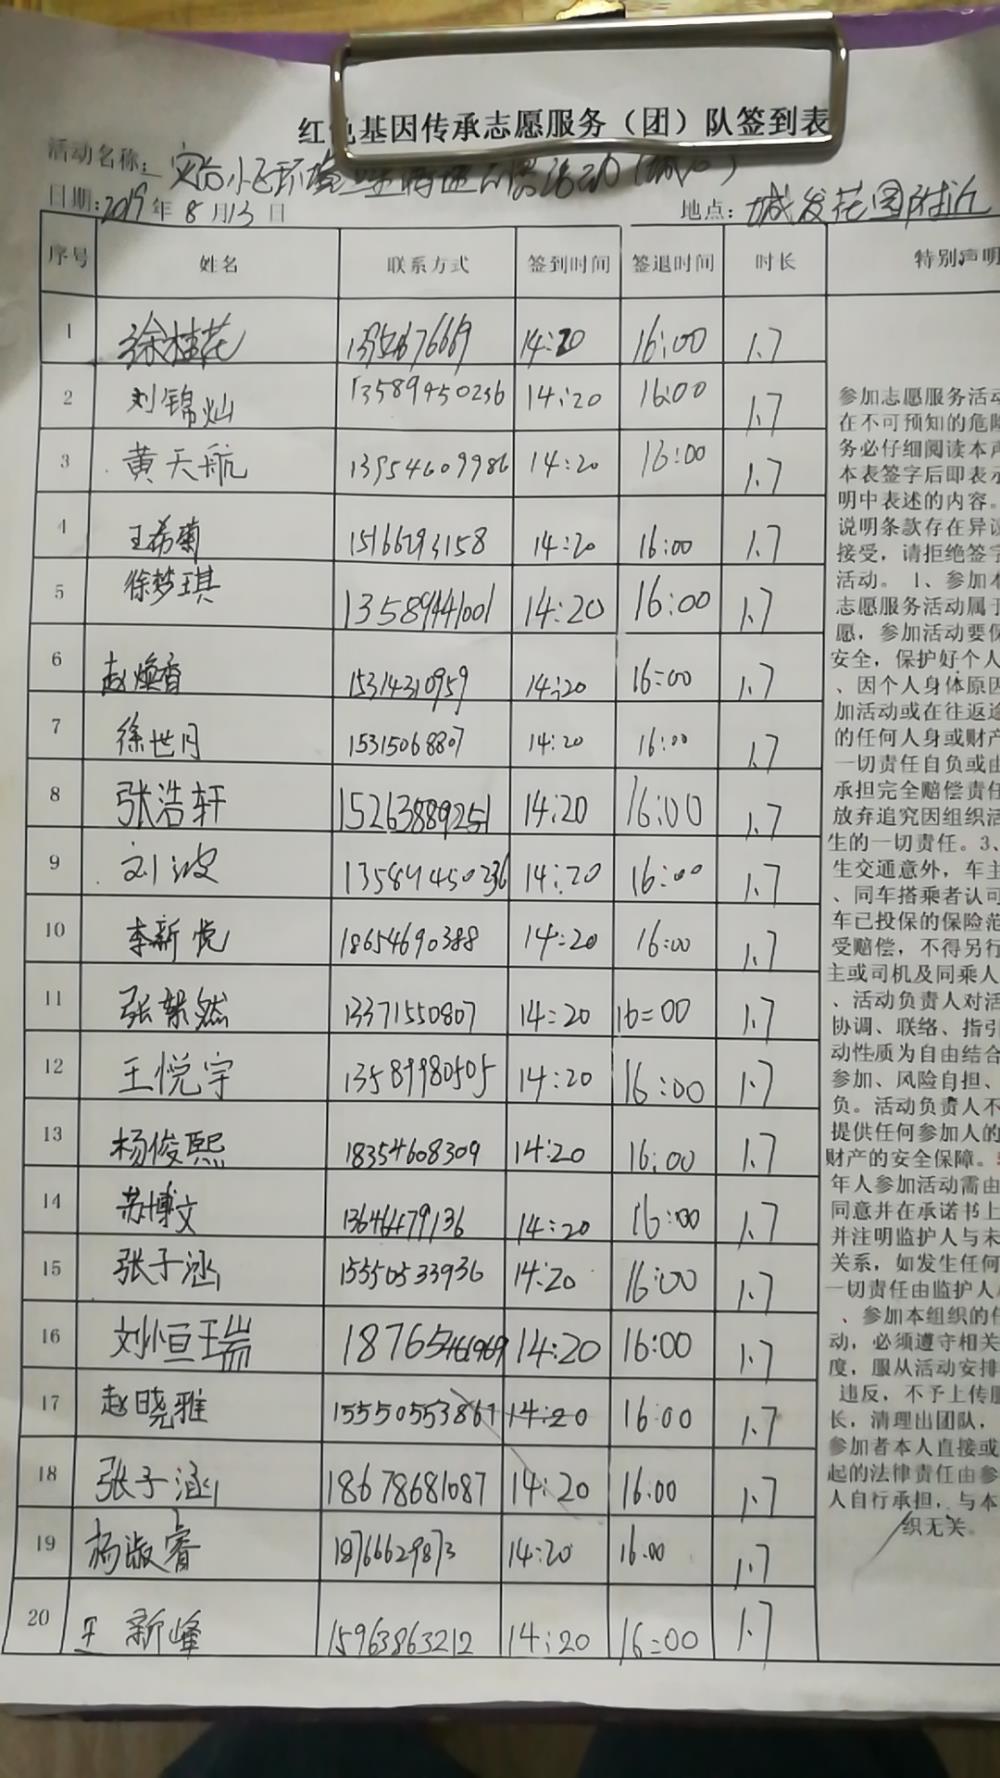 红色基因传承志愿服务（团）队签到表
活动名称：
日期：2019年8月13日 地点：城发花园附近
序号 姓名 联系方式 签到时间 签退时间 时长 特别声明
1 徐桂花 14:20 16:00 1.7
2 刘锦灿 13589450236 14:20 16:00 1.7
3 黄天航 13954609986 14:20 16:00 1.7
4 王希菊 15166293158 14:20 16:00 1.7
5 徐梦琪 13589441001 14:20 16:00 1.7
6 赵焕香 15314310959 14:20 16:00 1.7
7 徐世月 15315068807 14:20 16:00 1.7
8 张浩轩 15263889251 14:20 16:00 1.7
9 刘波 13589450236 14:20 16:00 1.7
10 李新悦 18654690388 14:20 16:00 1.7
11 张 然 13371550807 14:20 16:00 1.7
12 王悦宇 13589980505 14:20 16:00 1.7
13 杨俊熙 18354608309 14:20 16:00 1.7
14 苏博文 13646479136 14:20 16:00 1.7
15 张子涵 15550533936 14:20 16:00 1.7
16 刘恒瑞 14:20 16:00 1.7
17 赵晓雅 15550553861 14:20 16:00 1.7
18 张子涵 18678681087 14:20 16:00 1.7
19 杨淑睿 18766629873 14:20 16:00 1.7
20 王新峰 15963863212 14:20 16:00 1.7
参加志愿服务活动
在不可预知的危险
务必仔细阅读本声
本表签字后即表示
明中表述的内容。
说明条款存在异议
接受，请拒绝签字
活动。1、参加本
志愿服务活动属于
愿，参加活动要保
安全，保护好个人
、因个人身体原因
加活动或在往返途
的任何人身或财产
一切责任自负或由
承担完全赔偿责任
放弃追究因组织活
生的一切责任。3、
生交通意外，车主
、同车搭乘者认可
车已投保的保险范
受赔偿，不得另行
主或司机及同乘人
、活动负责人对活
协调、联络、指引
动性质为自由结合
参加、风险自担、
负。活动负责人不
提供任何参加人的
财产的安全保障。
年人参加活动需由
同意并在承诺书上
并注明监护人与未
关系，如发生任何
一切责任由监护人
、参加本组织的任
动，必须遵守相关
度，服从活动安排
违反，不予上传服
长，清理出团队，
参加者本人直接或
起的法律责任由参
人自行承担，与本
织无关。